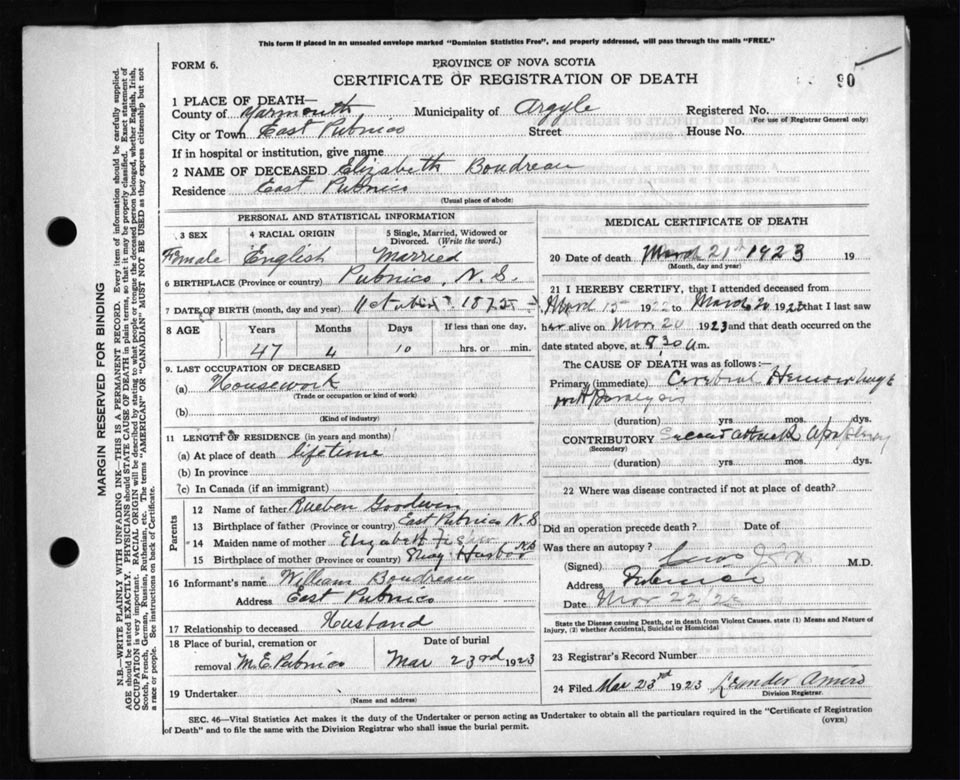 This form if placed in an unsealed envelope marked "Dominion Statistics Free", and properly addressed, will pass through the mails "FREE."
FORM 6.
PROVINCE OF NOVA SCOTIA
CERTIFICATE OF REGISTRATION OF DEATH
90
1 PLACE OF DEATH—
County of Yarmouth Municipality of Argyle Registered No.
(For use of Registrar General only)
City or Town East Pubnico Street House No.
If in hospital or institution, give name
2 NAME OF DECEASED Elizabeth Boudreau
Residence East Pubnico
(Usual place of abode)
PERSONAL AND STATISTICAL INFORMATION
3 SEX 4 RACIAL ORIGIN 5 Single, Married, Widowed or Divorced. (Write the word.)
Female English Married
6 BIRTHPLACE (Province or country) Pubnico, N.S.
7 DATE OF BIRTH (month, day and year)
8 AGE Years Months Days If less than one day,
47 4 10 hrs. or min.
9. LAST OCCUPATION OF DECEASED
(a) Housework
(Trade or occupation or kind of work)
(b)
(Kind of industry)
11 LENGTH OF RESIDENCE (in years and months)
(a) At place of death lifetime
(b) In province
(c) In Canada (if an immigrant)
Parents
12 Name of father Rueben Goodwin
13 Birthplace of father (Province or country) East Pubnico N.S.
14 Maiden name of mother Elizabeth
15 Birthplace of mother (Province or country) Harbor N.S.
16 Informant's name William Boudreau
Address East Pubnico
17 Relationship to deceased Husband
18 Place of burial, cremation or removal M.E. Pubnico
Date of burial Mar 23rd 1923
19 Undertaker
(Name and address)
MEDICAL CERTIFICATE OF DEATH
20 Date of death March 21st 1923 19
(Month, day and year)
21 I HEREBY CERTIFY, that I attended deceased from
March 15 192 to March 20 1923 that I last saw
her alive on Mar 20 1923 and that death occurred on
date stated above, at 8,30 a m.
The CAUSE OF DEATH was as follows:—
Primary (immediate) Cerebral Hemorrhage
with Paralysis
(duration) yrs. mos. dys.
CONTRIBUTORY Second attack Apoplexy
(Secondary)
(duration) yrs. mos. dys.
22 Where was disease contracted if not at place of death?
Did an operation precede death? Date of
Was there an autopsy?
(Signed) M.D.
Address Pubnico
Date Mar 22/23
State the Disease causing Death, or in death from Violent Causes, state (1) Means and Nature of Injury, (2) whether Accidental, Suicidal or Homicidal
23 Registrar's Record Number
24 Filed Mar 23rd 1923 Leander Amiro
Division Registrar.
SEC. 46—Vital Statistics Act makes it the duty of the Undertaker or person acting as Undertaker to obtain all the particulars required in the "Certificate of Registration of Death" and to file the same with the Division Registrar who shall issue the burial permit.
(OVER)
MARGIN RESERVED FOR BINDING
N.B.—WRITE PLAINLY WITH UNFADING INK—THIS IS A PERMANENT RECORD. Every item of information should be carefully supplied.
AGE should be stated EXACTLY. PHYSICIANS should STATE CAUSE OF DEATH in plain terms, so that it may be properly classified. Exact statement of
OCCUPATION is very important. RACIAL ORIGIN will be described by stating to what people or tongue the deceased person belonged, whether English, Irish,
Scotch, French, German, Russian, Ruthenian, etc. The terms "AMERICAN" OR "CANADIAN" MUST NOT BE USED as they express citizenship but not
a race or people. See instructions on back of Certificate.